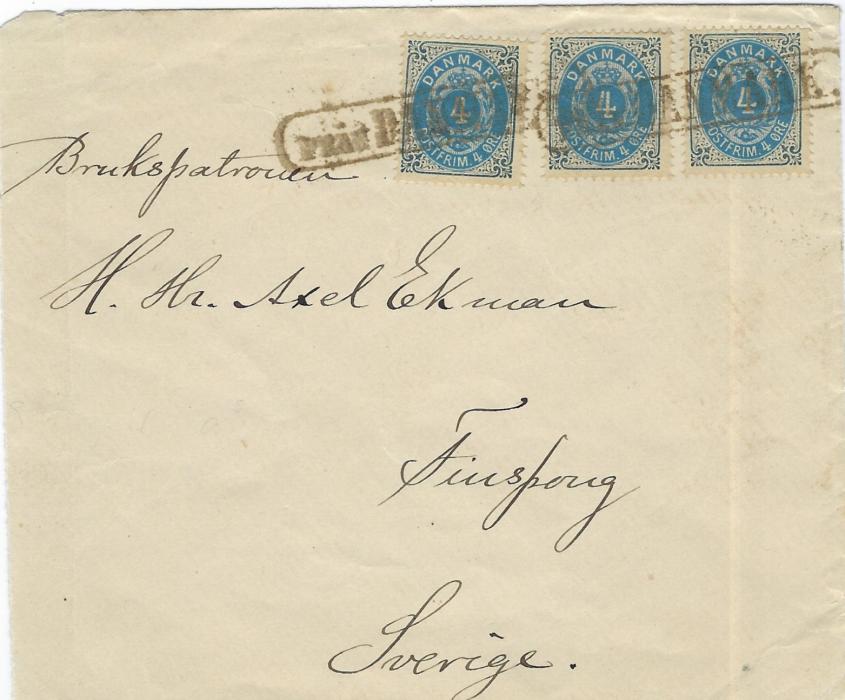 DANMARK DANMARK DANMARK
4 4 4
POSTFRIM. 4 ØRE POSTFRIM. 4 ØRE POSTFRIM. 4 ØRE
FRÅN DANMARK.
Brukspatronen
H. Hr. Axel Ekman
Finspong
Sverige.